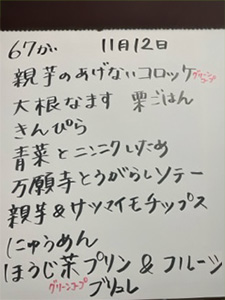 67が 11月12日
親芋のあげないコロッケ グリーンコープ
大根なます 栗ごはん
きんぴら
青菜とニンニクいため
万願寺とうがらしソテー
親芋&サツマイモチップス
にゅうめん
ほうじ茶プリン&フルーツ
グリーンコープ ブリュレ